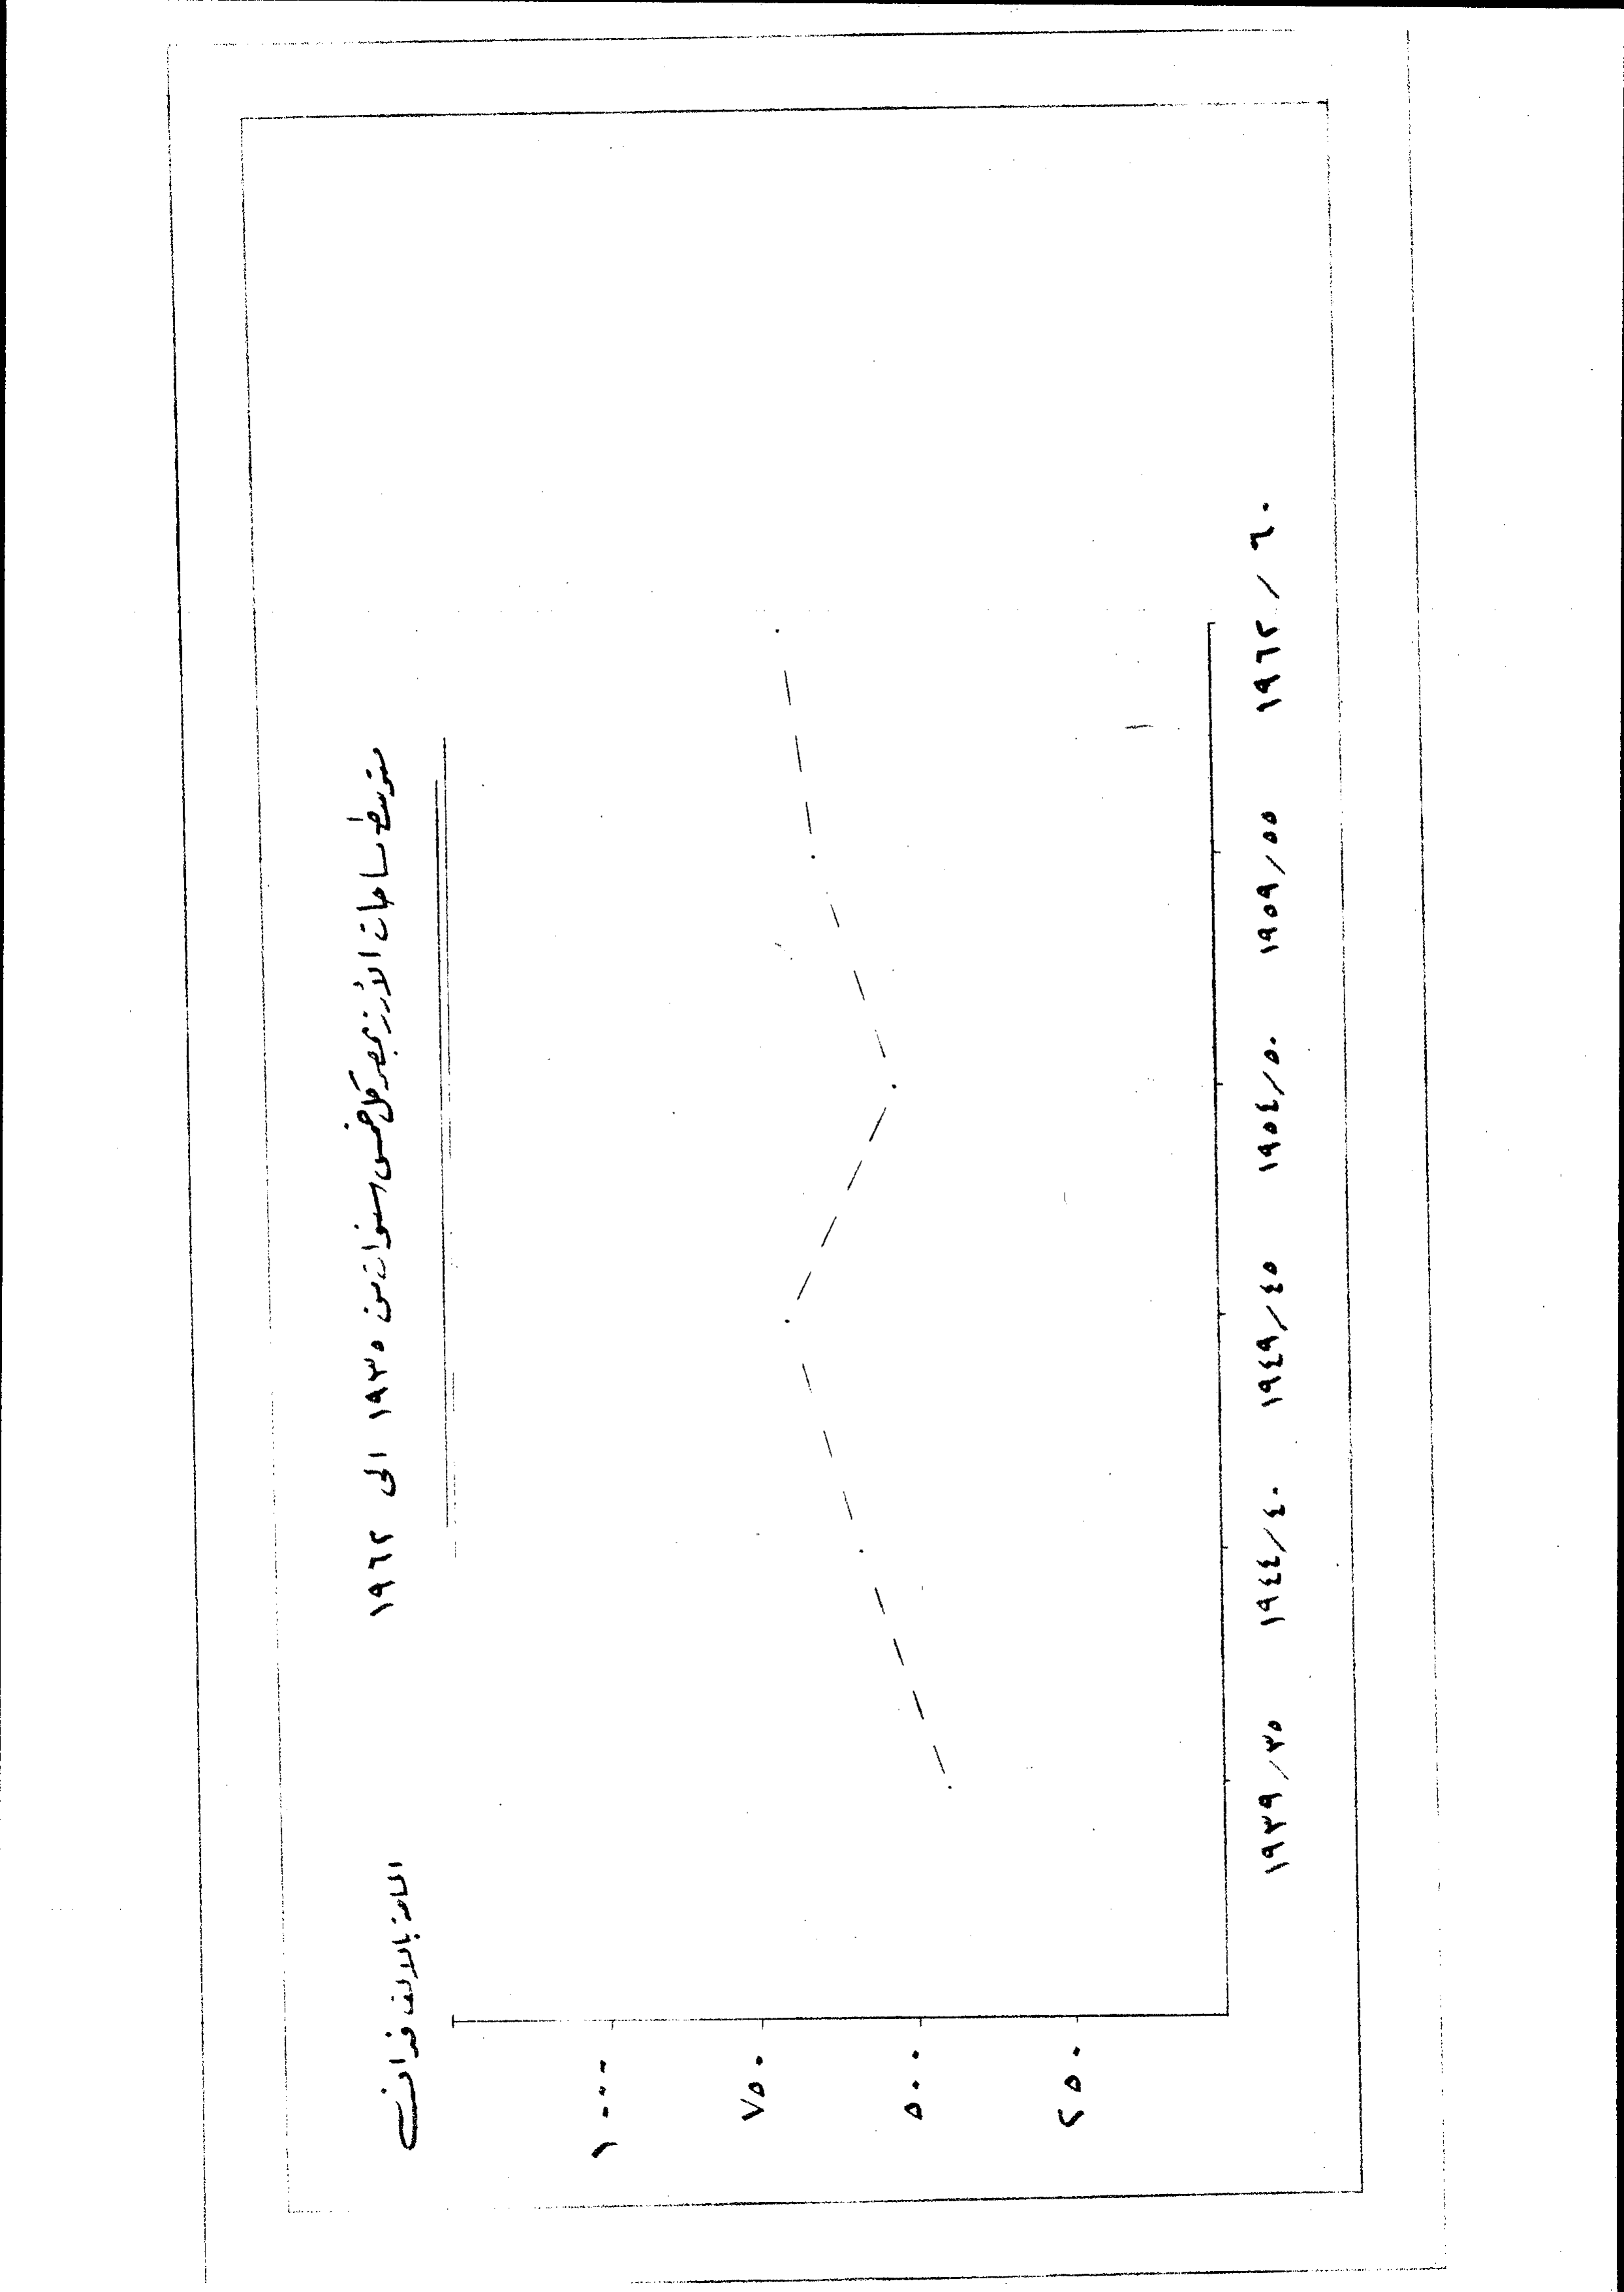 متوسط مساحات الأرز بمصر كل خمس سنوات من ١٩٣٥ الى ١٩٦٢
المساحة بالالف فدان
١٠٠٠
٧٥٠
٥٠٠
٢٥٠
١٩٣٩/٣٥ ١٩٤٤/٤٠ ١٩٤٩/٤٥ ١٩٥٤/٥٠ ١٩٥٩/٥٥ ١٩٦٢/٦٠